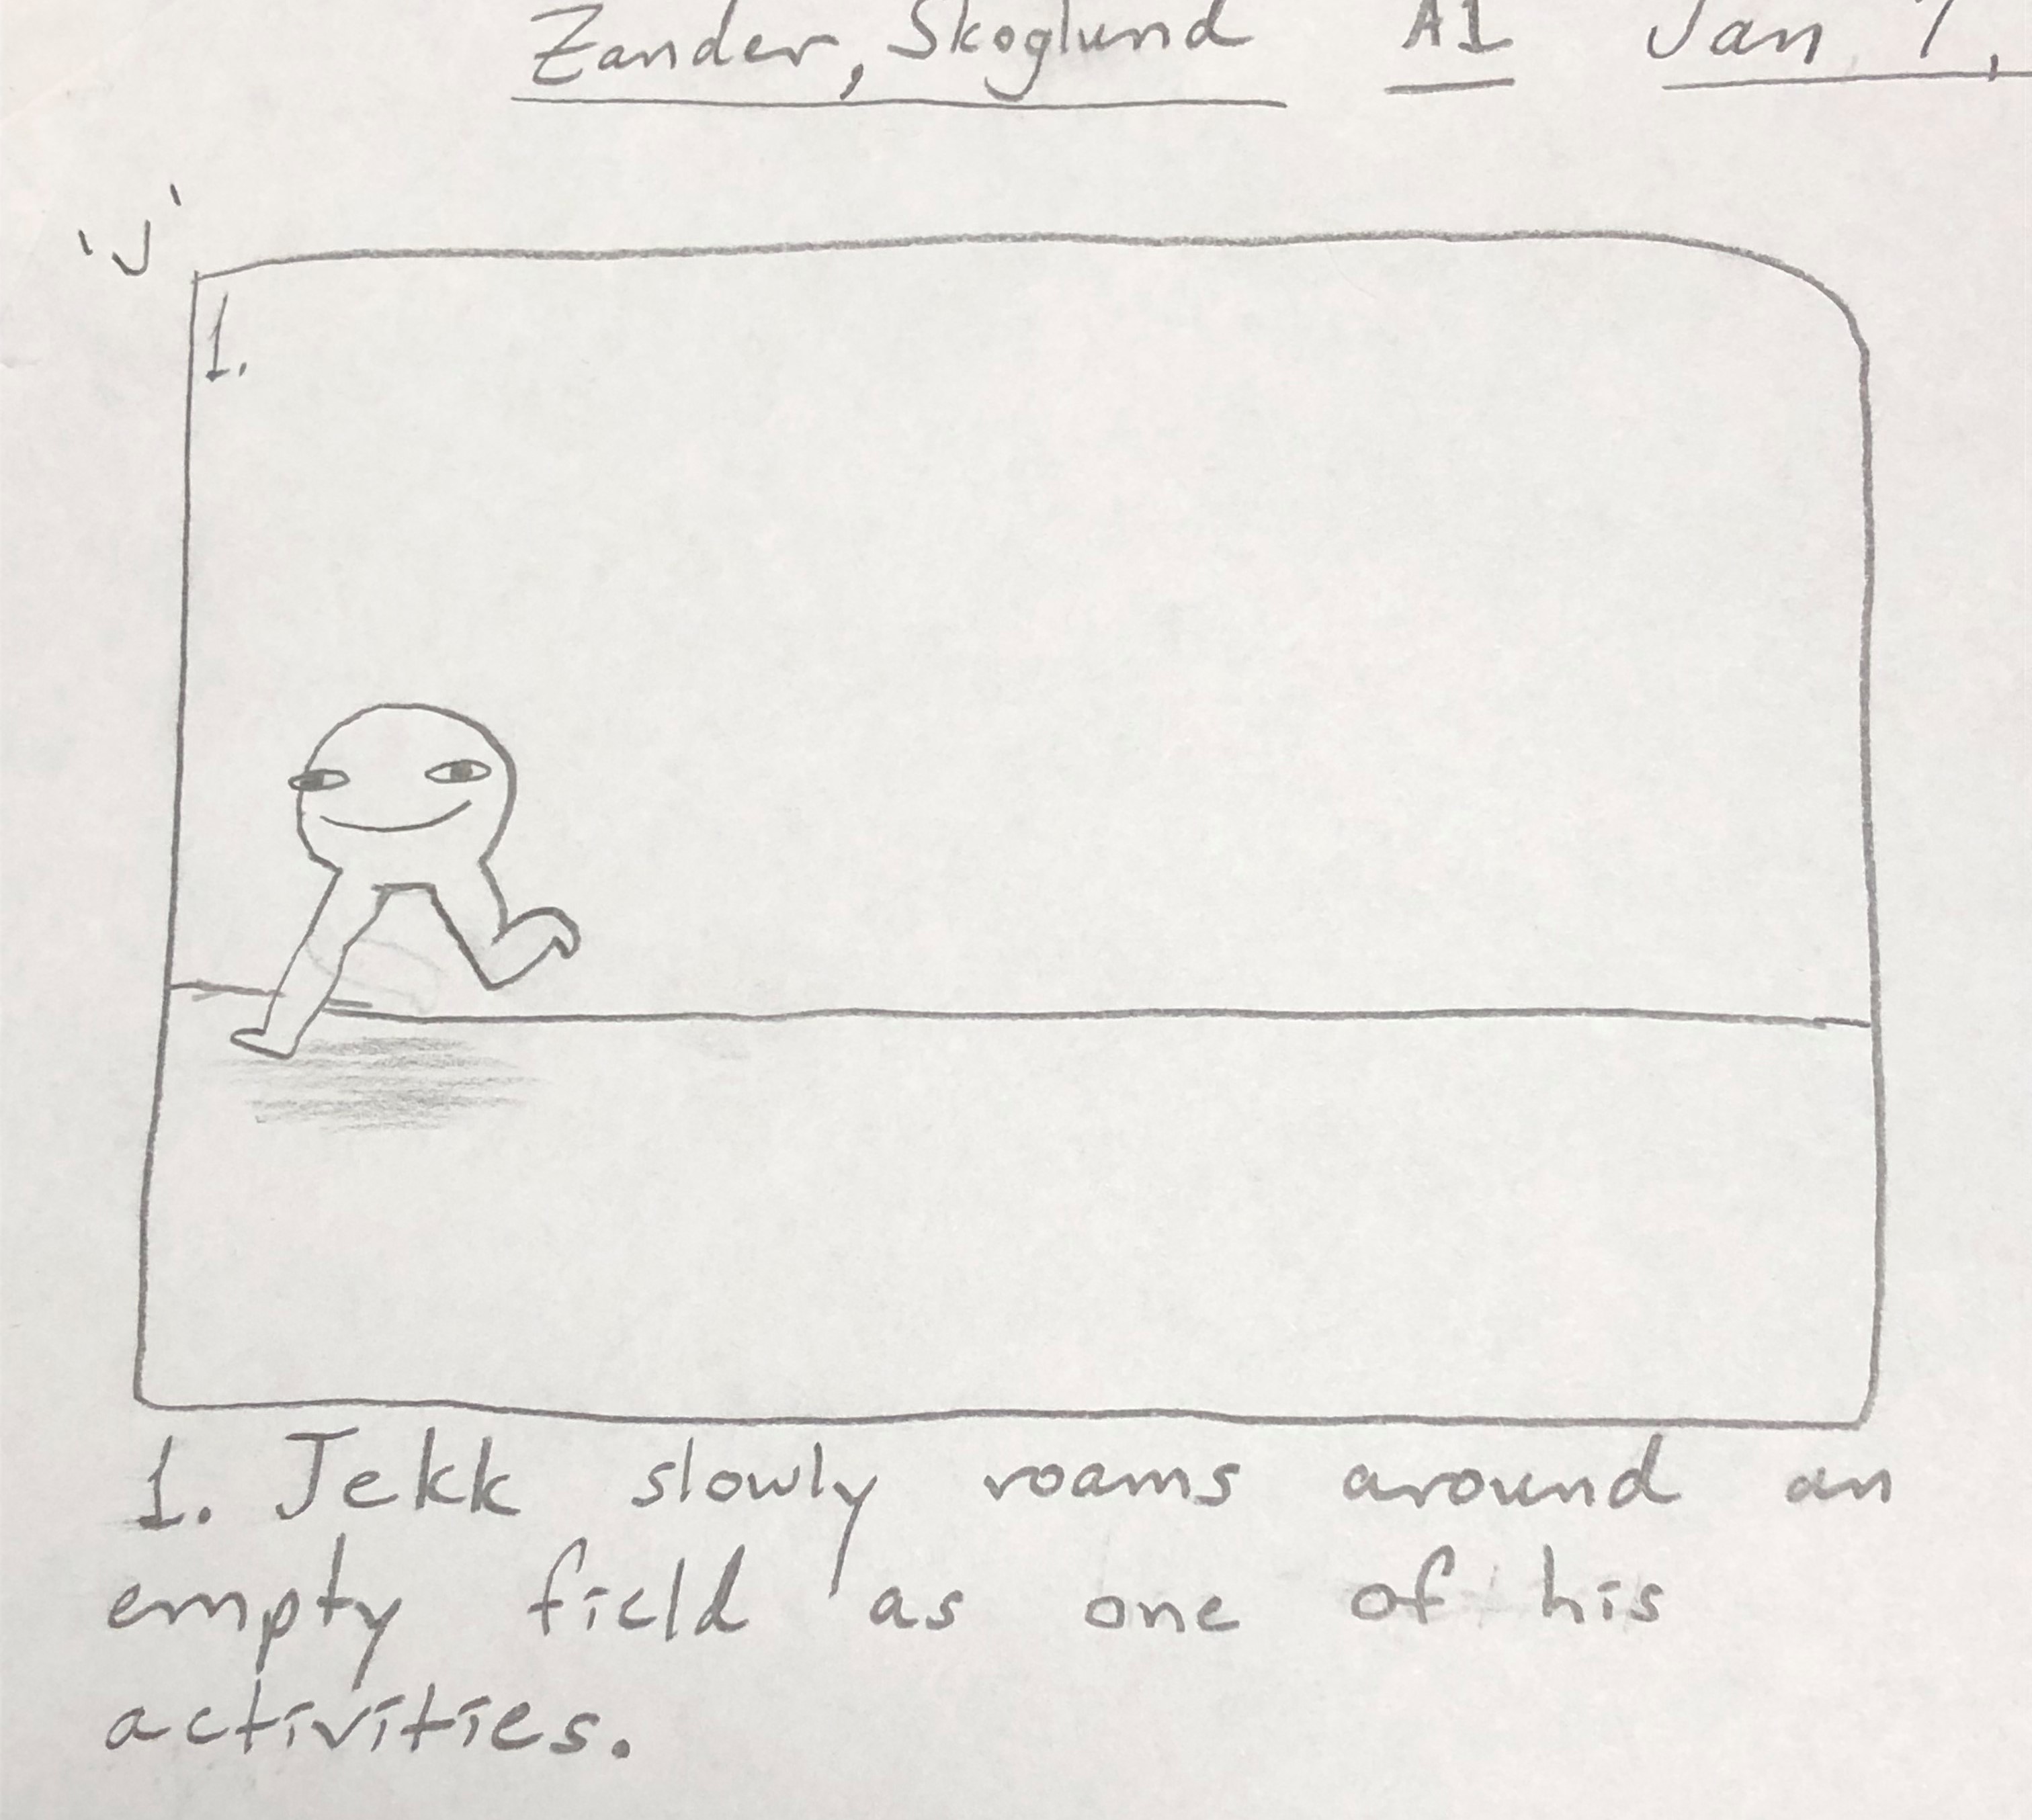 Zander, Skoglund A1 Jan 7,
'J'
1.
1. Jekk slowly roams around an
empty field as one of his
activities.